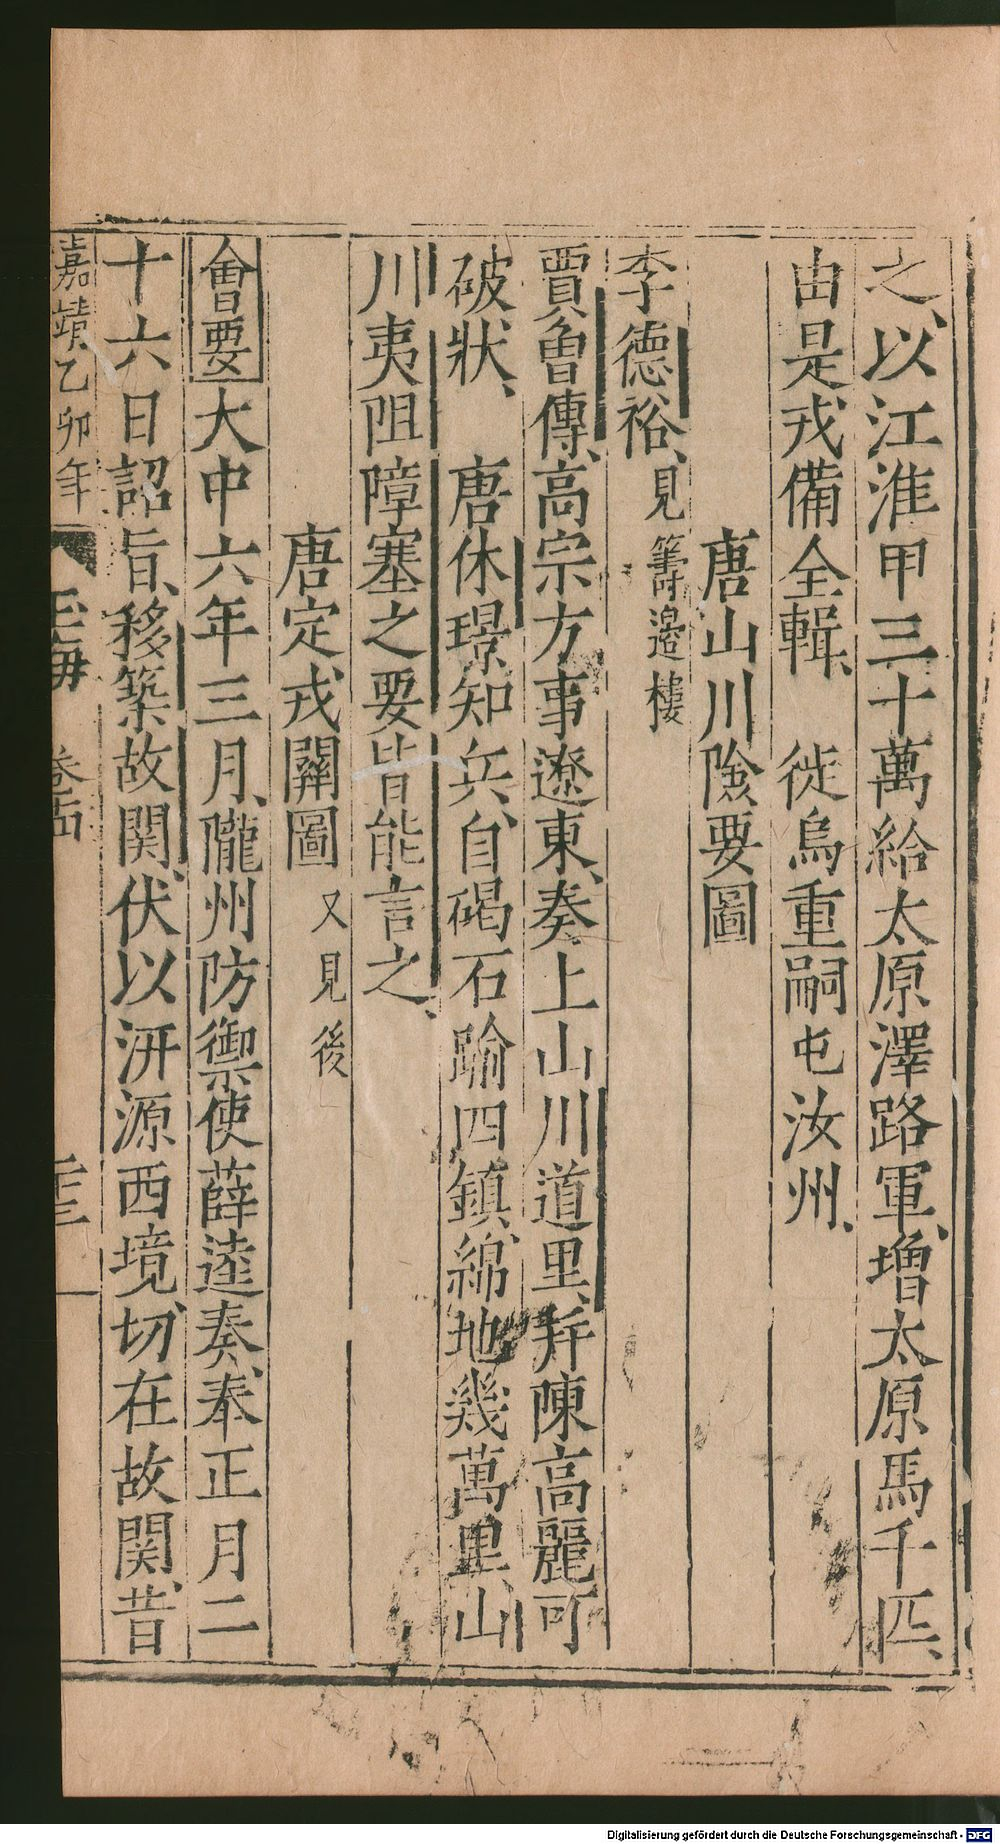 之、以江淮甲三十萬給太原澤路軍、增太原馬千匹、
由是戎備全輯、 徙烏重嗣屯汝州、
唐山川險要圖
李德裕、見籌邊樓
賈魯傳、高宗方事遼東、奏上山川道里、并陳高麗可
破狀、 唐休璟知兵、自碣石踰四鎮、綿地幾萬里、山
川夷阻障塞之要皆能言之、
唐定戎關圖 又見後
會要大中六年三月、隴州防禦使薛逵奏、奉正月二
十六日詔旨、移築故関、伏以汧源西境、切在故関、昔
嘉靖乙卯年 玉海 卷十四 二十三
Digitalisierung gefördert durch die Deutsche Forschungsgemeinschaft - DFG